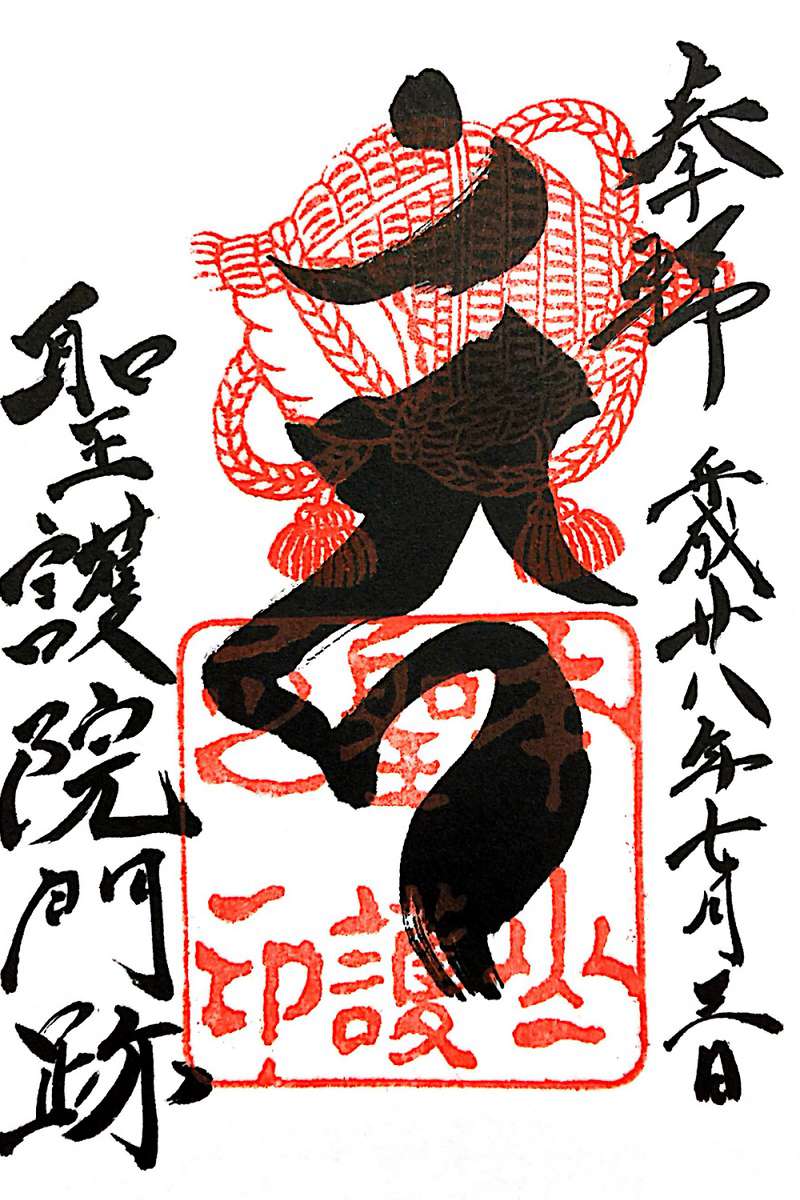 奉拜
平成廿八年七月三日
聖護院門跡
本
聖護
印